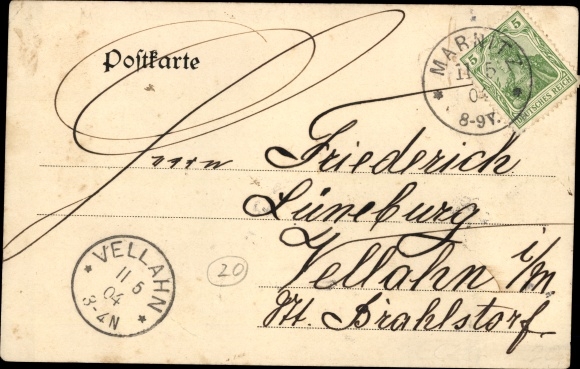 Postkarte
5
5
DEUTSCHES REICH
MARNITZ
11 5
04
8-9V.
Herrn Friederich
Lüneburg
Vellahn i/m.
St. Brahlstorf.
VELLAHN
11 5
04
3-4N
20